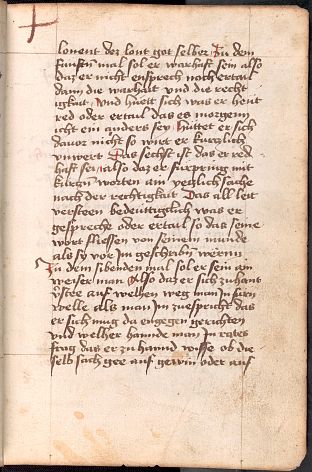 lonent der lont got selber / Zu dem
funften mal sol er warhaft sein also
daz er nicht ensprech noch ertail
dann die warhait und die recht
igkait / Und huett sich was er hewt
red oder ertail das es morgenn
icht ein anders sey / huttet er sich
davor nicht so wurt er kurczlich
unwert Das sechst ist das er red
haft sei / also daz er furpring mit
kurczen worten ain yeglich sache
nach der rechtigkait Das all leit
versteen bedeuttigklich was er
gespreche oder ertail so das seine
wort fliessen von seinem munde
als sy vor Im geschribn wernn
Zu dem sibenden mal sol er sein ain
weiser man Also daz er sich zuhant
verstee auf welhen weg man In furn
welle als man In zuespricht das
er sich mug da engegen gerichten
und welher hannde man In rates
frag das er zu hannd wisse ob die
selb sach gee auf gewin oder auf